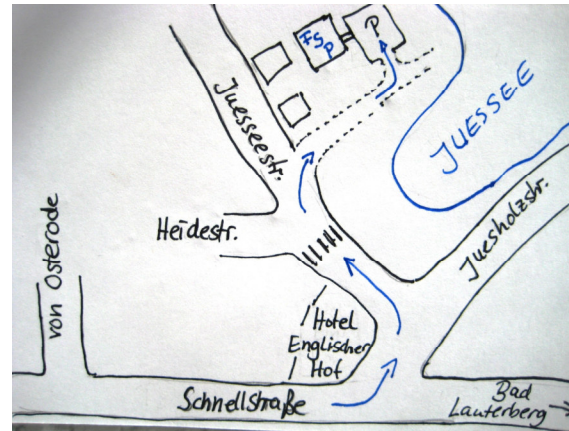 FS
P
P
JUESSEE
Juesseestr.
Heidestr.
Juesholzstr.
von Osterode
Hotel
Englischer
Hof
Schnellstraße
Bad
Lauterberg